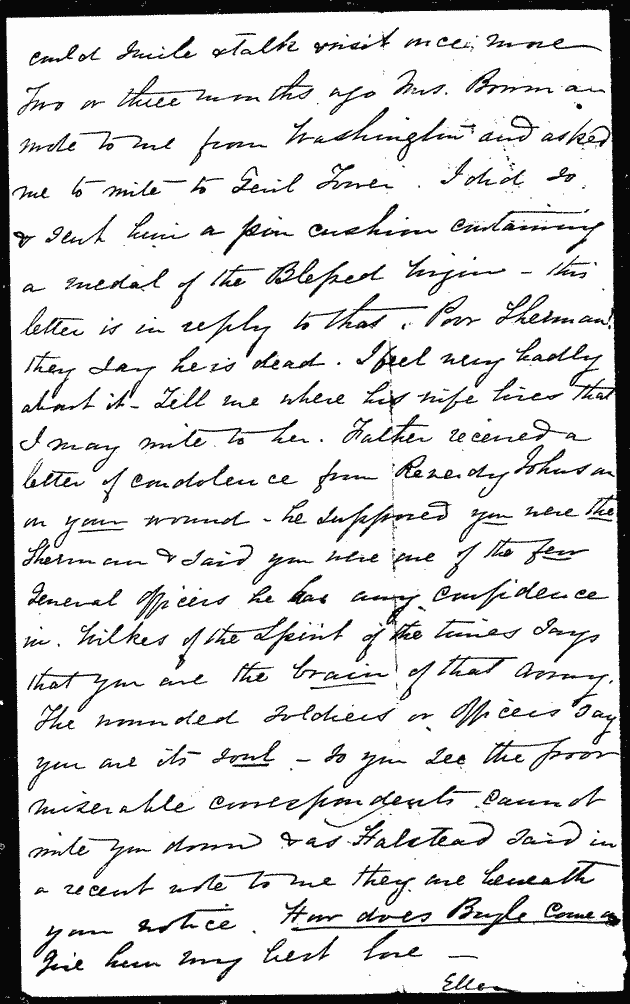 could smile & talk & visit once more
Two or three months ago Mrs. Bowman
wrote to me from Washington and asked
me to write to Genl Tower. I did so
& sent him a pin cushion containing
a medal of the Blessed Virgin – this
letter is in reply to that. Poor Sherman!
they say he is dead. I feel very badly
about it – Tell me where his wife lives that
I may write to her. Father received a
letter of condolence from Reverdy Johnson
on your wound – he supposed you were the
Sherman & said you were one of the few
General officers he has any confidence
in. Wilkes of the Spirit of the times says
that you are the brain of that army.
The wounded soldiers or officers say
you are its soul – So you see the poor
miserable correspondents cannot
write you down & as Halstead said in
a recent note to me they are beneath
your notice. How does Buyle come on
Give him my best love –
Ellen